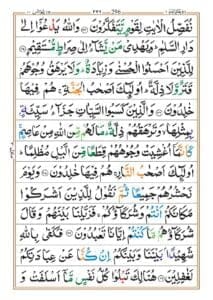 نُفَصِّلُ الْاٰيٰتِ لِقَوْمٍ يَّتَفَكَّرُوْنَ وَاللّٰهُ يَدْعُوْۤا اِلٰى
دَارِ السَّلٰمِ وَيَهْدِيْ مَنْ يَّشَآءُ اِلٰى صِرَاطٍ مُّسْتَقِيْمٍ
لِلَّذِيْنَ اَحْسَنُوا الْحُسْنٰى وَزِيَادَةٌ وَلَا يَرْهَقُ وُجُوْهَهُمْ
قَتَرٌ وَّلَا ذِلَّةٌ اُولٰٓئِكَ اَصْحٰبُ الْجَنَّةِ هُمْ فِيْهَا
خٰلِدُوْنَ وَالَّذِيْنَ كَسَبُوا السَّيِّاٰتِ جَزَآءُ سَيِّئَةٍۢ
بِمِثْلِهَا وَتَرْهَقُهُمْ ذِلَّةٌ مَا لَهُمْ مِّنَ اللّٰهِ مِنْ عَاصِمٍ
كَاَنَّمَاۤ اُغْشِيَتْ وُجُوْهُهُمْ قِطَعًا مِّنَ الَّيْلِ مُظْلِمًا
اُولٰٓئِكَ اَصْحٰبُ النَّارِ هُمْ فِيْهَا خٰلِدُوْنَ وَيَوْمَ
نَحْشُرُهُمْ جَمِيْعًا ثُمَّ نَقُوْلُ لِلَّذِيْنَ اَشْرَكُوْا
مَكَانَكُمْ اَنْتُمْ وَشُرَكَآؤُكُمْ فَزَيَّلْنَا بَيْنَهُمْ وَقَالَ
شُرَكَآؤُهُمْ مَّا كُنْتُمْ اِيَّانَا تَعْبُدُوْنَ فَكَفٰى بِاللّٰهِ
شَهِيْدًۢا بَيْنَنَا وَبَيْنَكُمْ اِنْ كُنَّا عَنْ عِبَادَتِكُمْ
لَغٰفِلِيْنَ هُنَالِكَ تَبْلُوْا كُلُّ نَفْسٍ مَّاۤ اَسْلَفَتْ وَ